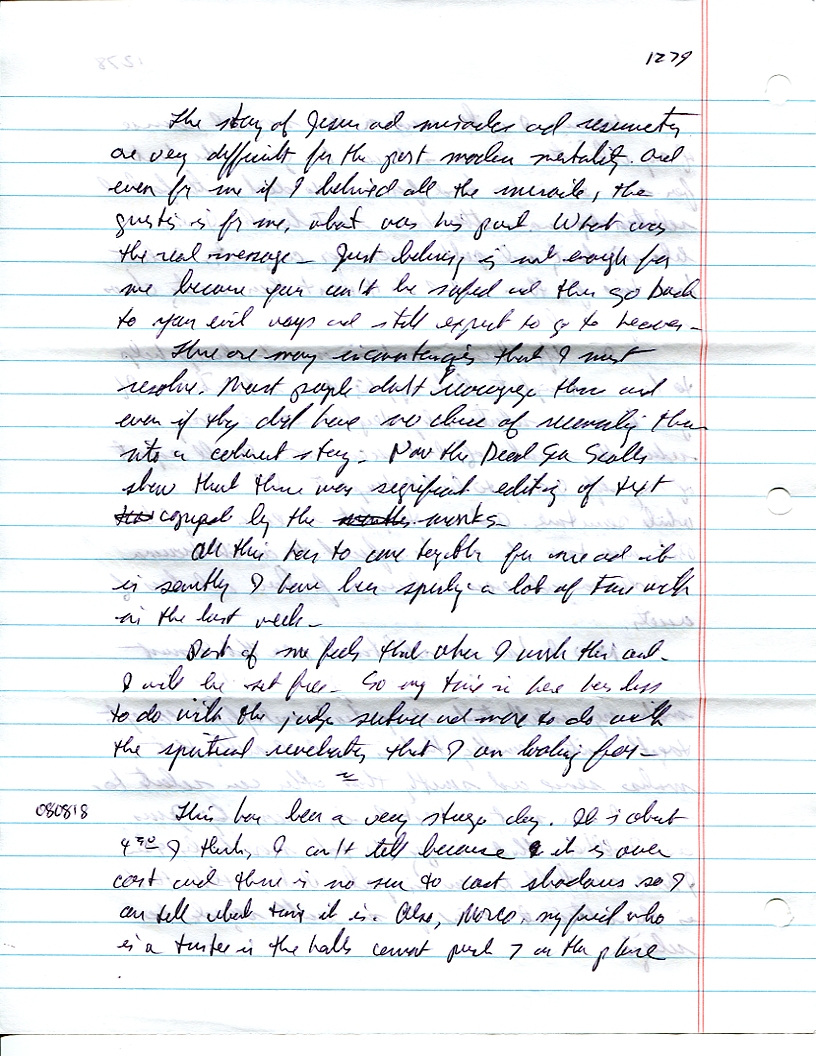 1279
The story of Jesus and miracles and resurrection
are very difficult for the post modern mentality. And
even for me if I believed all the miracles, the
question is for me, what was his point. What was
the real message - Just believing is not enough for
me because you can't be saved and then go back
to your evil ways and still expect to go to heaven -
There are many inconsistencies that I must
resolve. Most people don't recognize them and
even if they did have no chance of reconciling them
into a coherent story - Now the Dead Sea Scrolls
show that there was significant editing of text
copied by the monks -
All this has to come together for me and it
is something I have been spending a lot of time with
in the last week -
Part of me feels that when I work this out -
I will be set free - So my time in here has less
to do with the judge and more to do with
the spiritual revelation that I am looking for -
080818
This has been a very strange day. It is about
4 30 I think, I can't tell because it is over
cast and there is no sun to cast shadows so I
can tell what time it is. Also, Marco, my friend who
is a trustee in the halls cannot push 7 on the phone